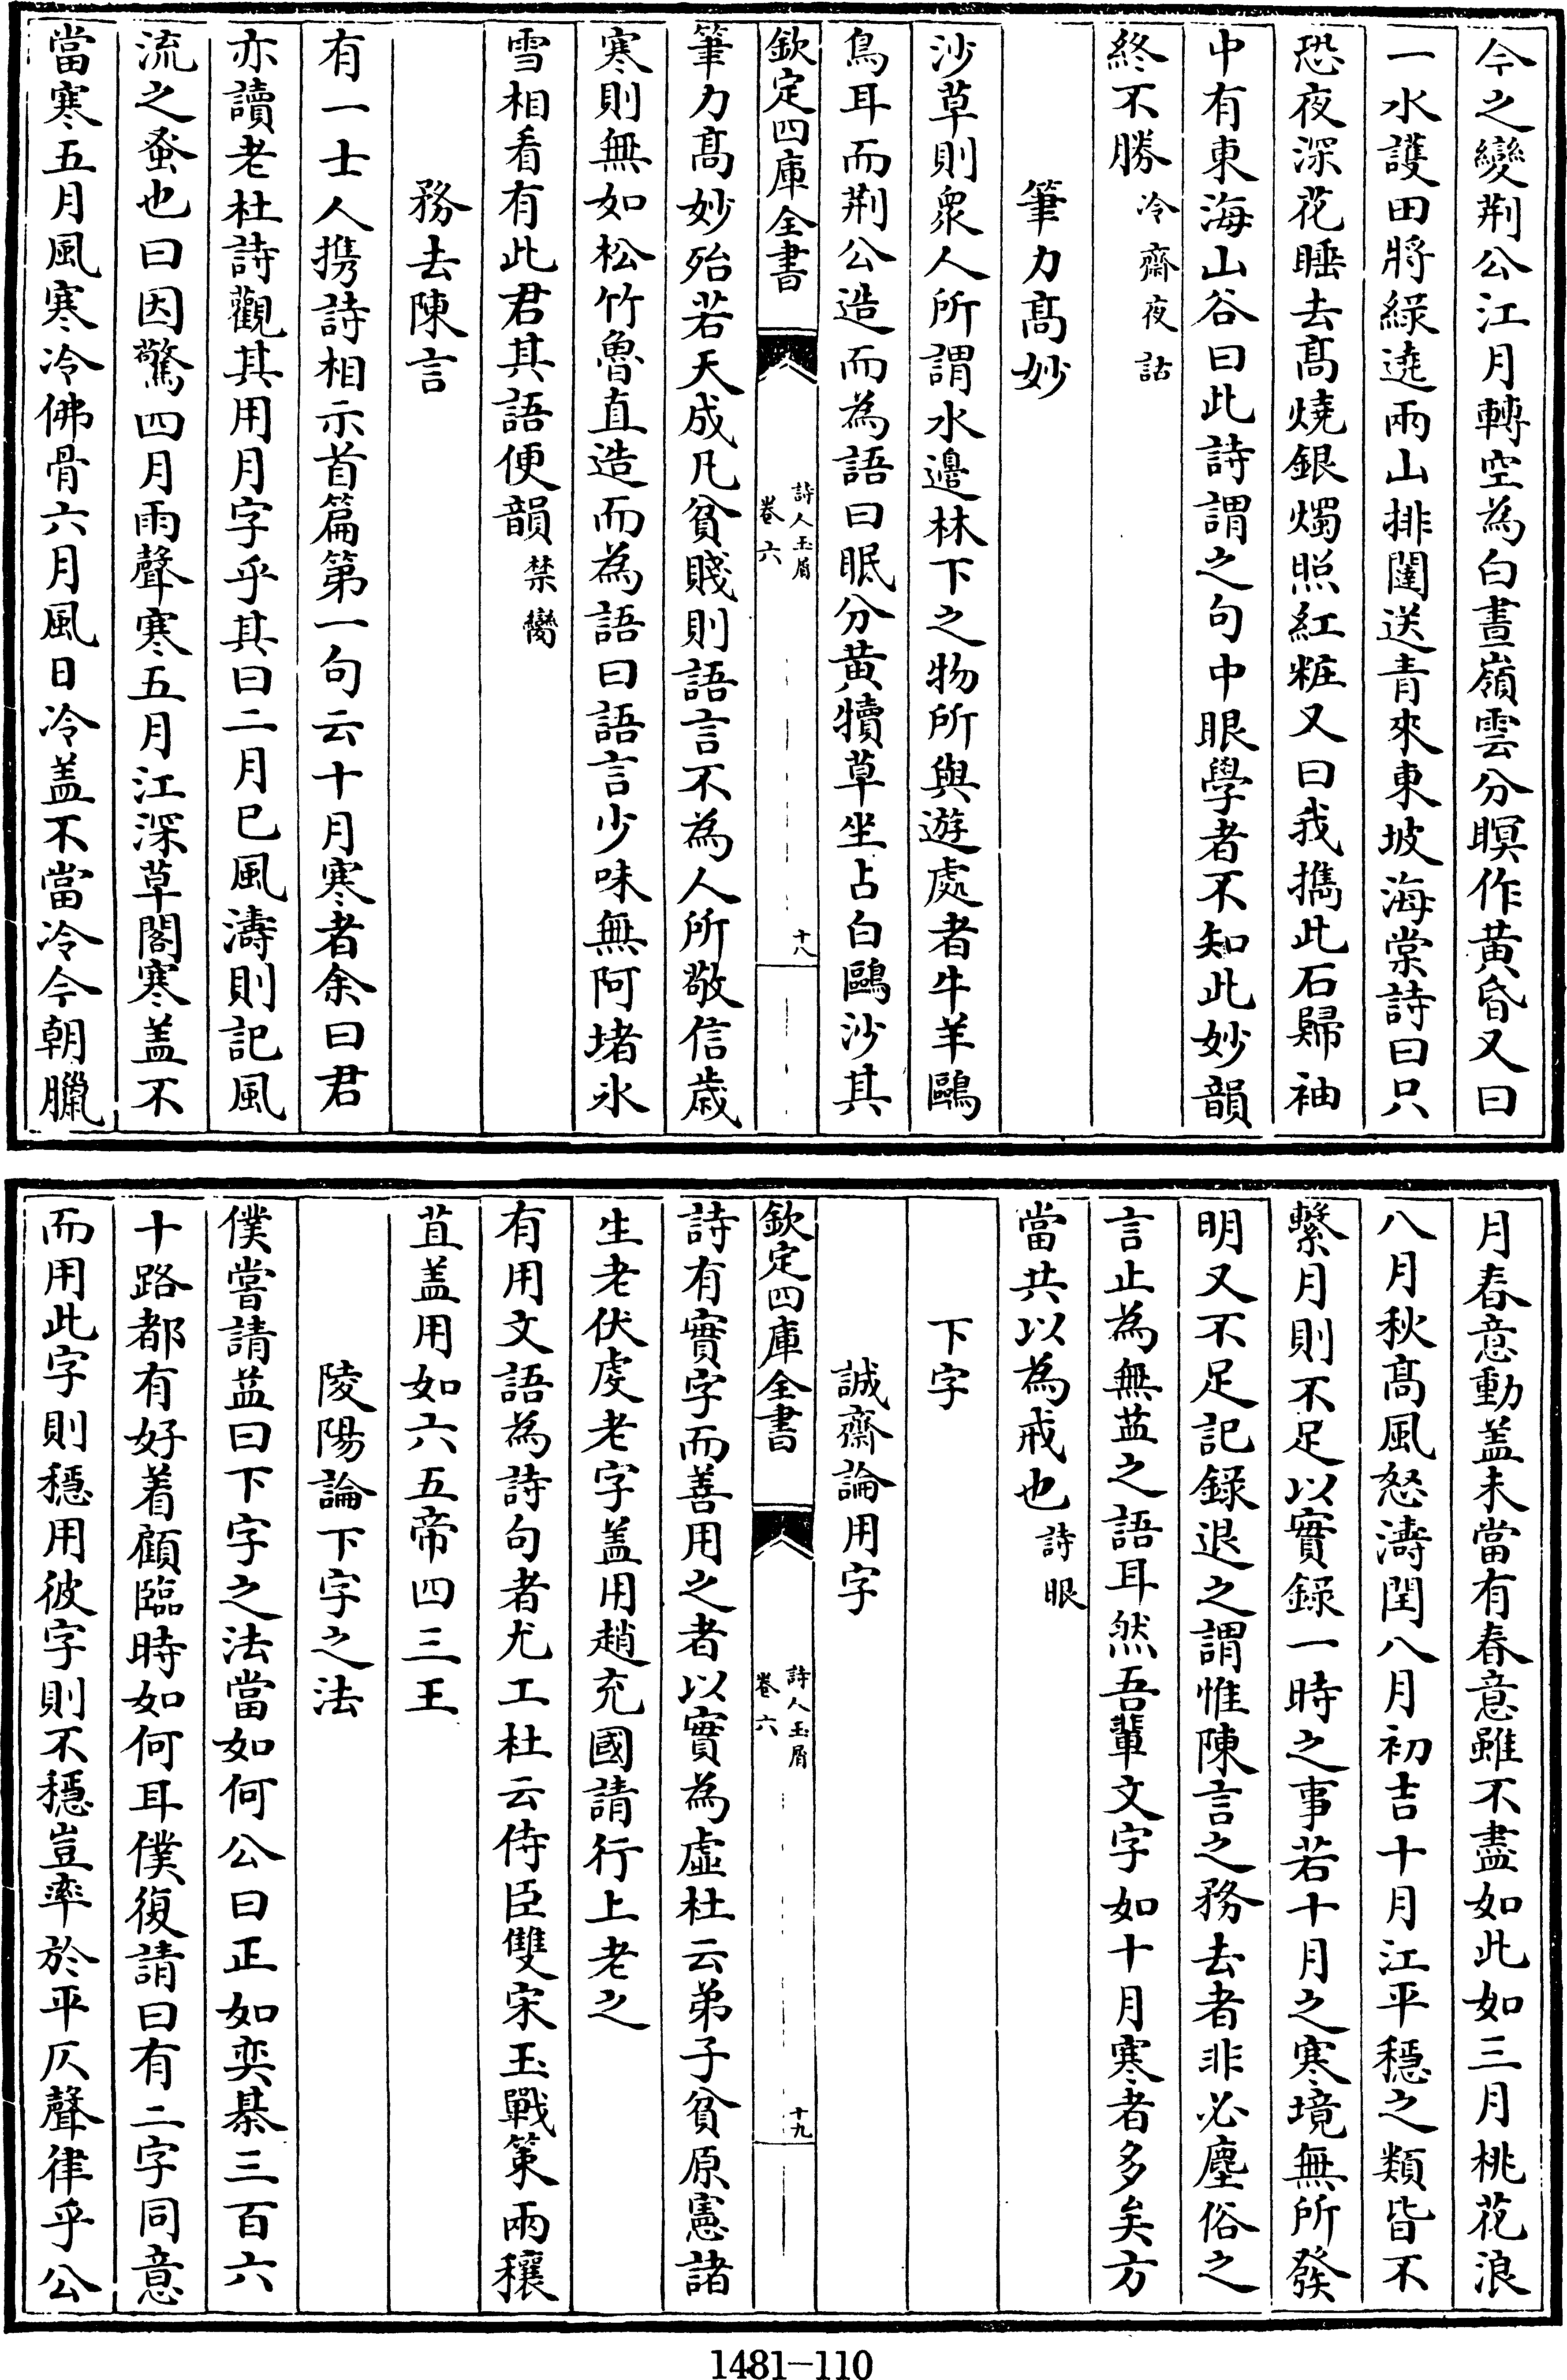 今之變荆公江月轉空為白晝嶺雲分暝作黄昏又曰
一水護田將綠遶兩山排闥送青來東坡海棠詩曰只
恐夜深花睡去髙燒銀燭照紅粧又曰我攜此石歸袖
中有東海山谷曰此詩謂之句中眼學者不知此妙韻
終不勝冷齋夜話
筆力髙妙
沙草則衆人所謂水邊林下之物所與遊處者牛羊鷗
鳥耳而荆公造而為語曰眠分黄犢草坐占白鷗沙其
欽定四庫全書
詩人玉屑
卷六
十八
筆力髙妙殆若天成凡貧賤則語言不為人所敬信歳
寒則無如松竹魯直造而為語曰語言少味無阿堵氷
雪相看有此君其語便韻禁臠
務去陳言
有一士人携詩相示首篇第一句云十月寒者余曰君
亦讀老杜詩觀其用月字乎其曰二月已風濤則記風
流之蚤也曰因驚四月雨聲寒五月江深草閣寒盖不
當寒五月風寒冷佛骨六月風日冷盖不當冷今朝臘
月春意動盖未當有春意雖不盡如此如三月桃花浪
八月秋髙風怒濤閏八月初吉十月江平穩之類皆不
繫月則不足以實錄一時之事若十月之寒境無所發
明又不足記録退之謂惟陳言之務去者非必塵俗之
言止為無益之語耳然吾輩文字如十月寒者多矣方
當共以為戒也詩眼
下字
誠齋論用字
欽定四庫全書
詩人玉屑
卷六
十九
詩有實字而善用之者以實為虛杜云弟子貧原憲諸
生老伏䖍老字盖用趙充國請行上老之
有用文語為詩句者尤工杜云侍臣雙宋玉戰策兩穰
苴盖用如六五帝四三王
陵陽論下字之法
僕嘗請益曰下字之法當如何公曰正如奕棊三百六
十路都有好着顧臨時如何耳僕復請曰有二字同意
而用此字則穩用彼字則不穩豈率於平仄聲律乎公
1481-110